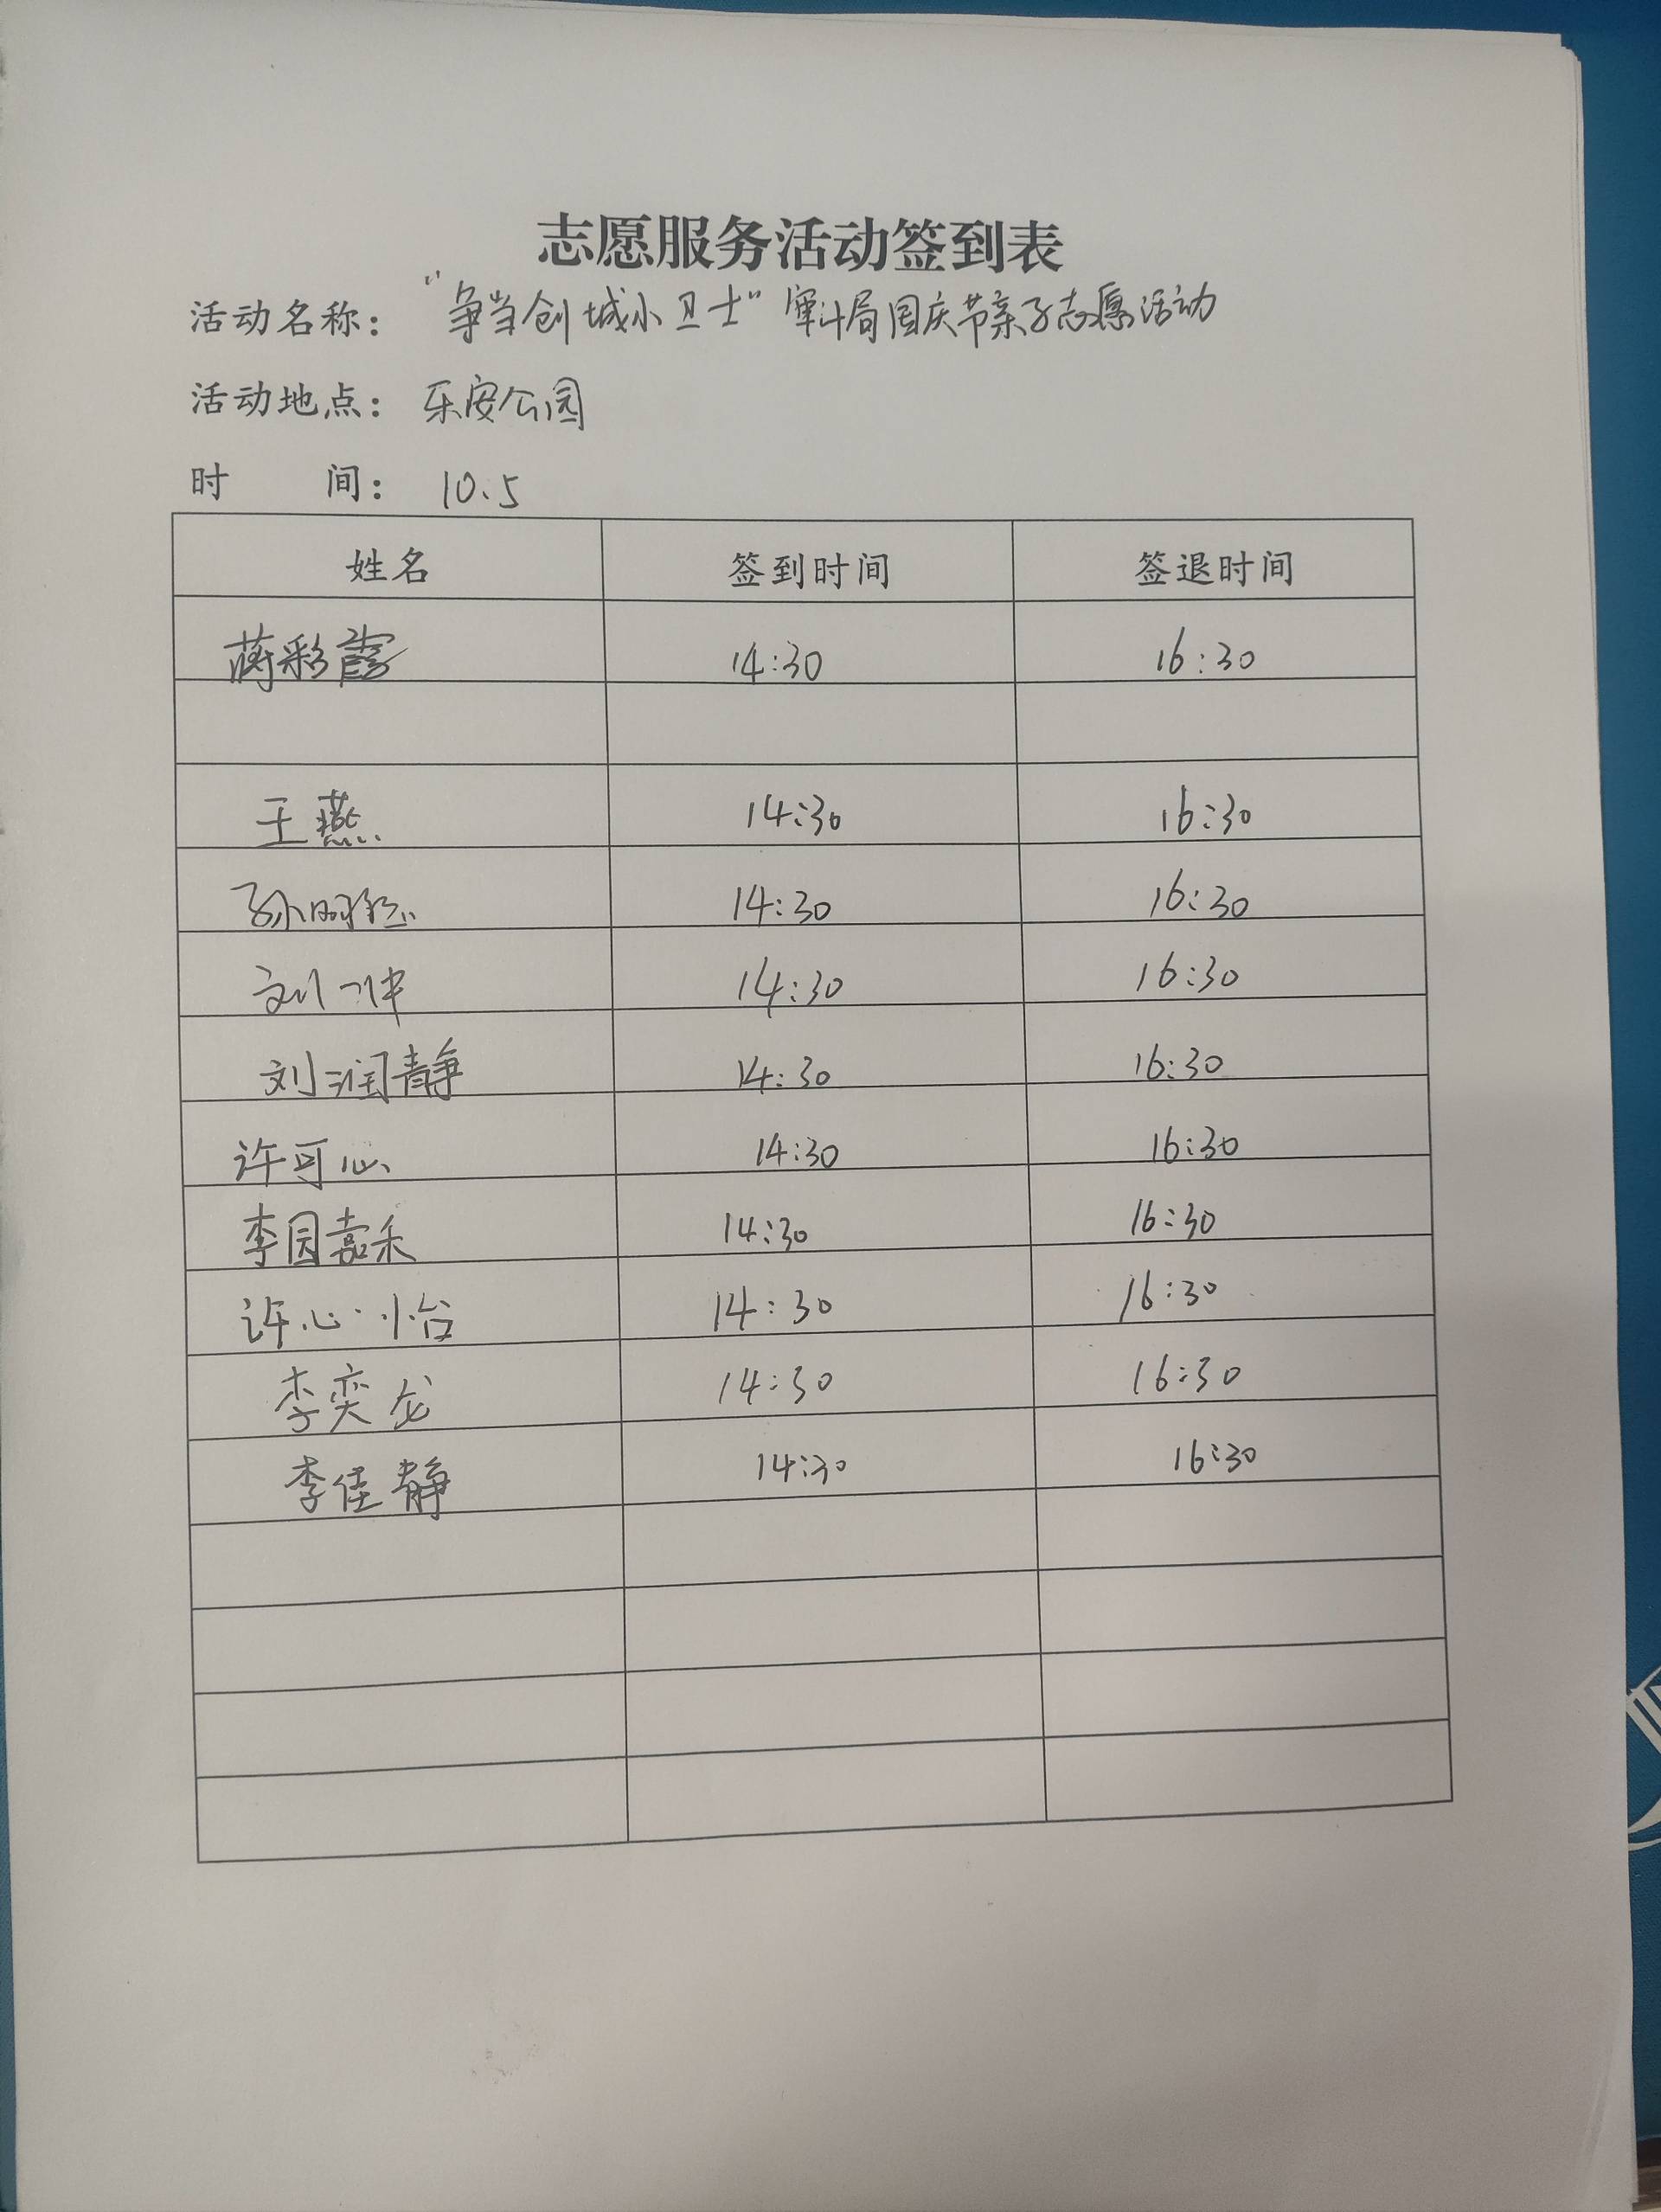 志愿服务活动签到表
活动名称： “争当创城小卫士”审计局国庆节亲子志愿活动
活动地点： 乐安公园
时 间： 10.5
姓名 签到时间 签退时间
蒋彩霞 14:30 16:30
王燕 14:30 16:30
14:30 16:30
14:30 16:30
刘润静 14:30 16:30
许可心 14:30 16:30
李园嘉禾 14:30 16:30
许心怡 14:30 16:30
李奕龙 14:30 16:30
李佳静 14:30 16:30